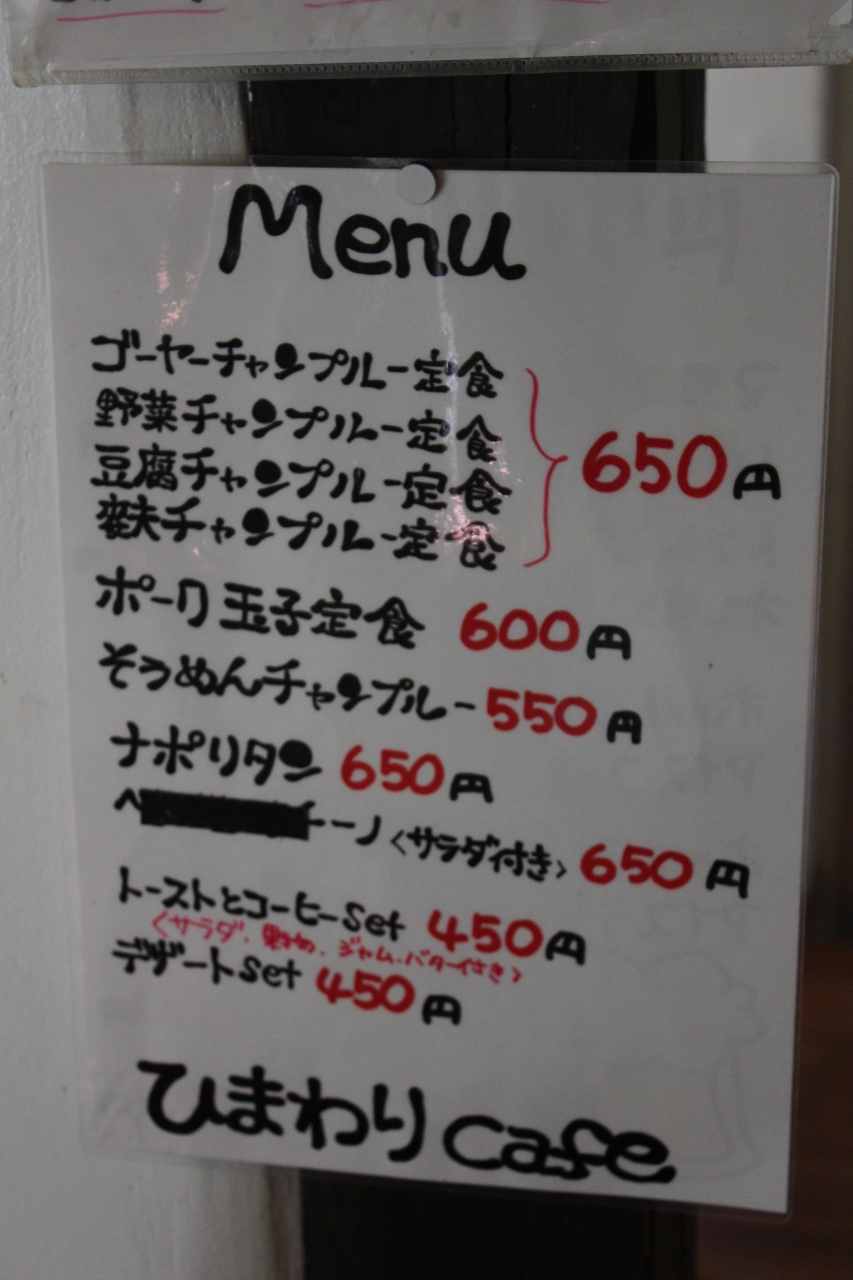 Menu
ゴーヤーチャンプルー定食
野菜チャンプルー定食
豆腐チャンプルー定食
麩チャンプルー定食
650円
ポーク玉子定食 600円
そうめんチャンプルー 550円
ナポリタン 650円
ペ チーノ<サラダ付き> 650円
トーストとコーヒーset 450円
<サラダ、果物、ジャム、バター付き>
デザートset 450円
ひまわり cafe